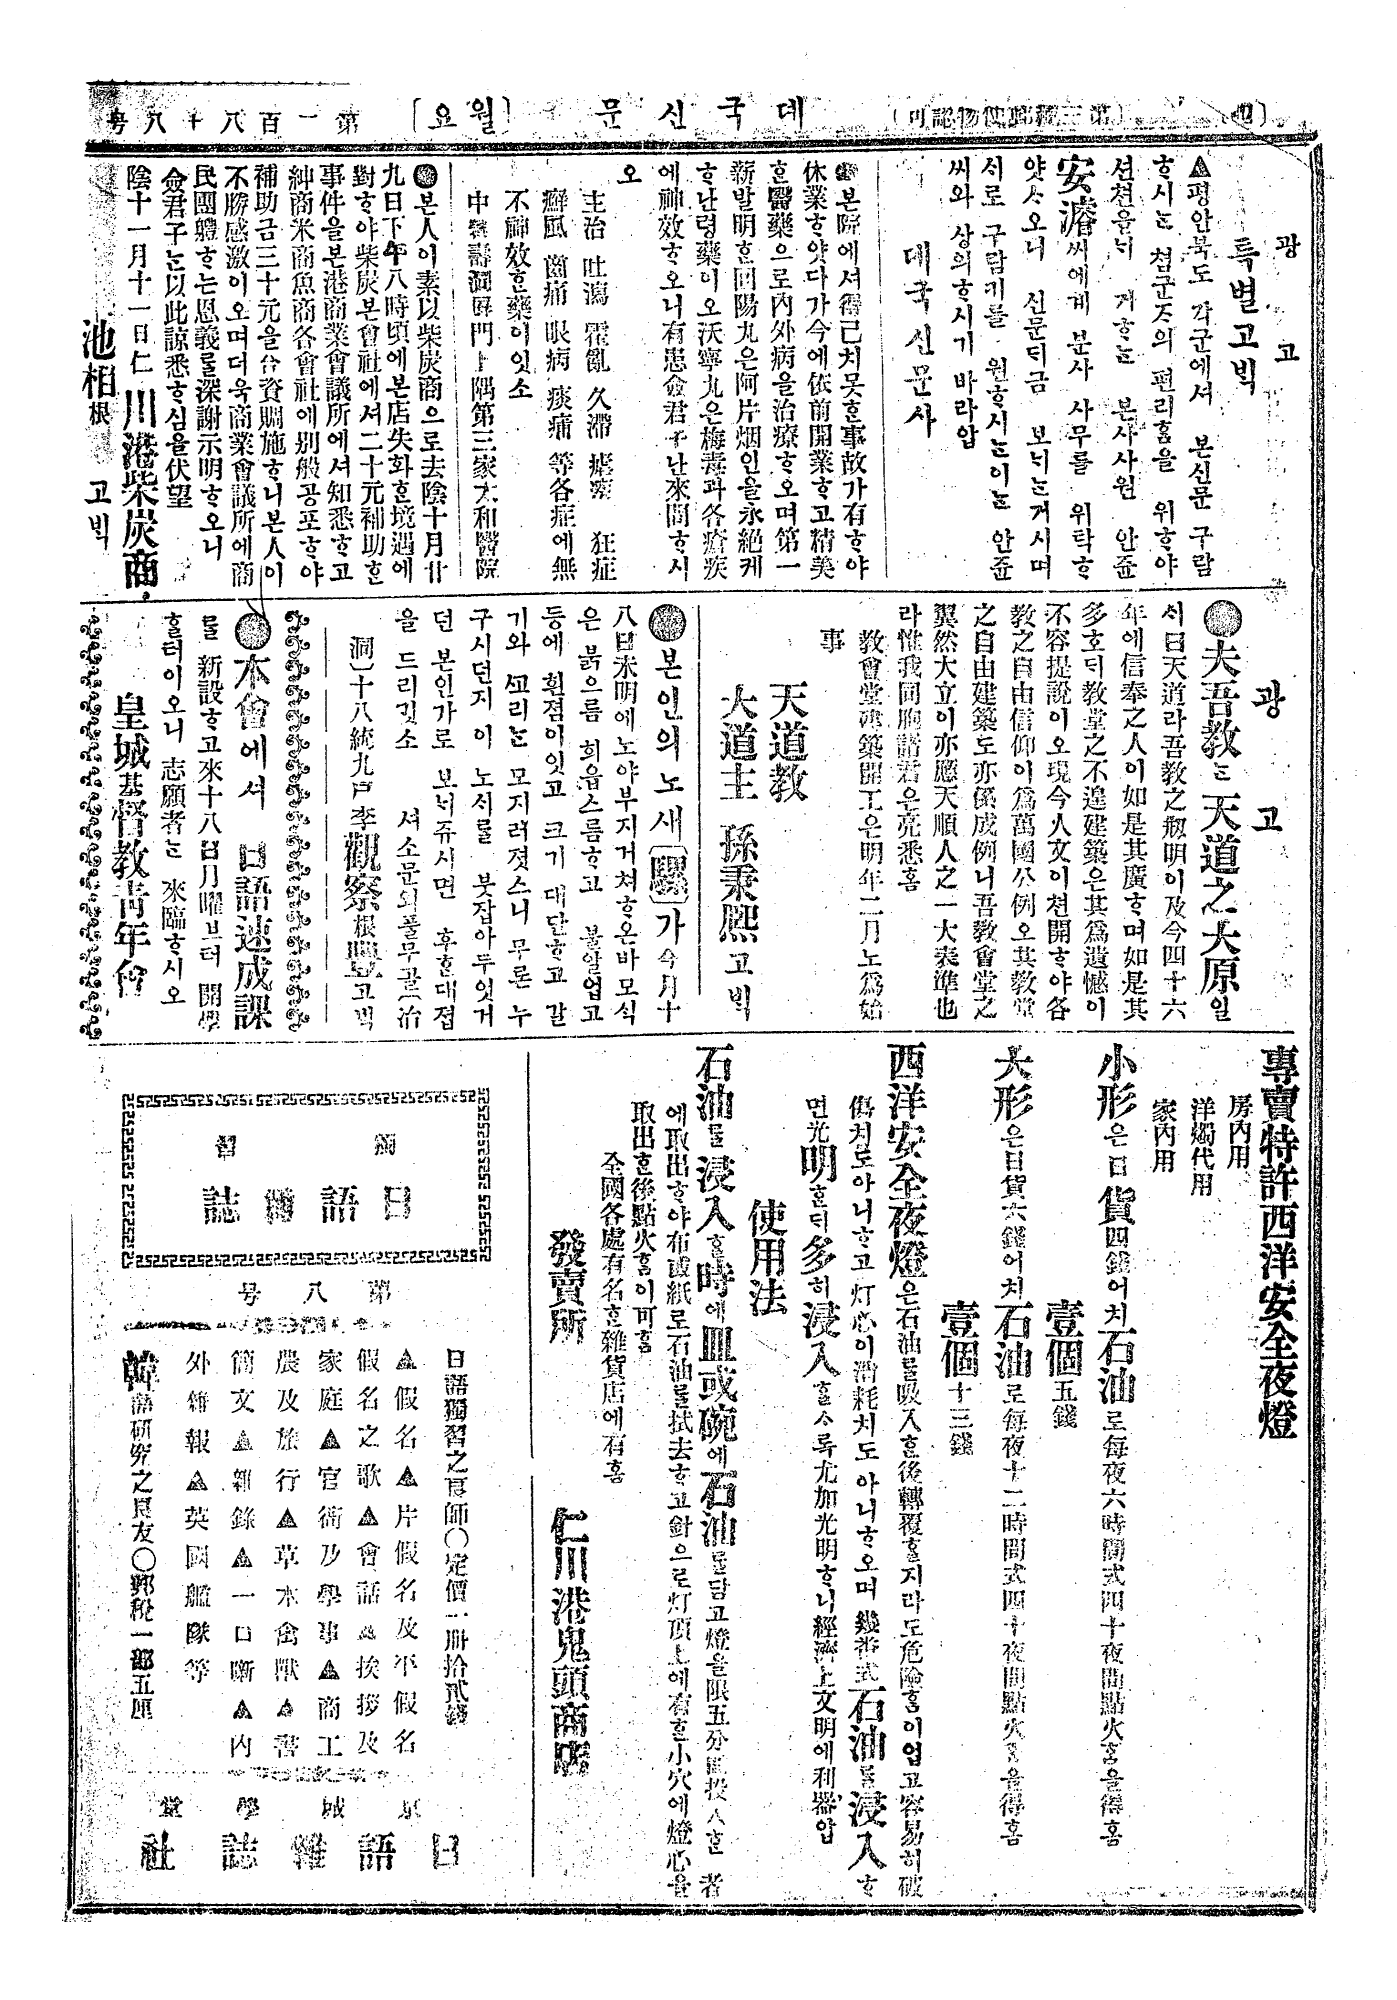 (四) (第三種郵便物認可) 뎨국신문 (월요) 第一百八十八号
광고
특별고빅
▲평안북도 각군에셔 본신문 구람
ᄒᆞ시ᄂᆞᆫ 쳠군ᄌᆞ의 편리홈을 위ᄒᆞ야
션쳔읍ᄂᆡ 거ᄒᆞᄂᆞᆫ 본사사원 안쥰
安濬씨에게 분사 사무를 위탁ᄒᆞ
얏ᄉᆞ오니 신문ᄃᆡ금 보ᄂᆡᄂᆞᆫ거시며
서로 구람기를 원ᄒᆞ시ᄂᆞᆫ이ᄂᆞᆫ 안쥰
씨와 상의ᄒᆞ시기 바라압
대국신문사
●본院에셔得已치못ᄒᆞᆫ事故가有ᄒᆞ야
休業ᄒᆞ얏다가今에依前開業ᄒᆞ고精美
ᄒᆞᆫ醫藥으로內外病을治療ᄒᆞ오며第一
新발明ᄒᆞᆫ回陽丸은阿片烟인을永絕케
ᄒᆞ난령藥이오沃寧丸은梅毒과各瘡疾
에神效ᄒᆞ오니有患僉君子난來問ᄒᆞ시
오
主治 吐瀉 霍亂 久滯 瘧疾 狂症
癬風 齒痛 眼病 痰痛 等各症에無
不神效ᄒᆞᆫ藥이잇소
中署壽洞屛門上隅第三家大和醫院
●본人이素以柴炭商으로去陰十月廿
九日下午八時頃에본店失화ᄒᆞᆫ境遇에
對ᄒᆞ야柴炭본會社에셔二十元補助ᄒᆞᆫ
事件을본港商業會議所에셔知悉ᄒᆞ고
紳商米商魚商各會社에別般공포ᄒᆞ야
補助금三十元을合資賙施ᄒᆞ니본人이
不勝感激이오며더욱商業會議所에商
民團體ᄒᆞᄂᆞᆫ恩義를深謝示明ᄒᆞ오니
僉君子ᄂᆞᆫ以此諒悉ᄒᆞ심을伏望
陰十一月十一日仁川港柴炭商,
池相根 고빅
광고
●夫吾敎ᄂᆞᆫ天道之大原일
ᄉᆡ曰天道라吾敎之刱明이及今四十六
年에信奉之人이如是其廣ᄒᆞ며如是其
多호ᄃᆡ敎堂之不遑建築은其爲遺憾이
不容提說이오現今人文이천開ᄒᆞ야各
敎之自由信仰이爲萬國公例오其敎堂
之自由建築도亦係成例니吾敎會堂之
翼然大立이亦應天順人之一大表準也
라惟我同胞諸君은亮悉홈
敎會堂建築開工은明年二月노爲始
事
天道敎
大道主 孫秉熙고빅
●본인의노새(騾)가今月十
八日未明에노야부지거쳐ᄒᆞ온바모식
은붉으름 희읍스름ᄒᆞ고 불알업고
등에 흰졈이잇고 크기 대단ᄒᆞ고 갈
기와 ᄭᅩ리ᄂᆞᆫ 모지러졋스니 무론 누
구시던지 이 노ᄉᆡ를 붓잡아두엇거
던 본인가로 보ᄂᆡ쥬시면 후ᄒᆞᆫ대졉
을 드리깃소 셔소문외풀무골(冶
洞)十八統九戶李觀察根豐고ᄇᆡᆨ
●本會에셔 日語速成課
를 新設ᄒᆞ고來十八日月曜브터 開學
ᄒᆞᆯ터이오니 志願者ᄂᆞᆫ 來臨ᄒᆞ시오
皇城基督敎靑年會
專賣特許西洋安全夜燈
房內用
洋燭代用
家內用
小形은日貨四錢어치石油로每夜六時間式四十夜間點火홈을得홈
壹個五錢
大形은日貨六錢어치石油로每夜十二時間式四十夜間點火홈을得홈
壹個十三錢
西洋安全夜燈은石油를吸入ᄒᆞᆫ後轉覆ᄒᆞᆯ지라도危險홈이업고容易히破
傷치로아니ᄒᆞ고灯心이消耗치도아니ᄒᆞ오며幾番式石油를浸入ᄒᆞ
면光明ᄒᆞᆫᄃᆡ多히浸入ᄒᆞᆯᄉᆞ록尤加光明ᄒᆞ니經濟上文明에利器압
使用法
石油를浸入ᄒᆞᆯ時에皿或碗에石油를담고燈을限五分間投入ᄒᆞᆫ者
에取出ᄒᆞ야布或紙로石油를拭去ᄒᆞ고針으로灯頂上에有ᄒᆞᆫ小穴에燈心을
取出ᄒᆞᆫ後點火홈이可홈
全國各處有名ᄒᆞᆫ雜貨店에有홈
發賣所 仁川港鬼頭商店
獨習
日語雜誌
第八号
日語獨習之良師○定價一冊拾貳錢
▲假名▲片假名及平假名
假名之歌▲會話▲挨拶及
家庭▲官衙及學事▲商工
農及旅行▲草木禽獸▲書
簡文▲雜錄▲一口噺▲內
外雜報▲英國艦隊等
韓語硏究之良友○郵稅一部五厘
京城學堂
日語雜誌社